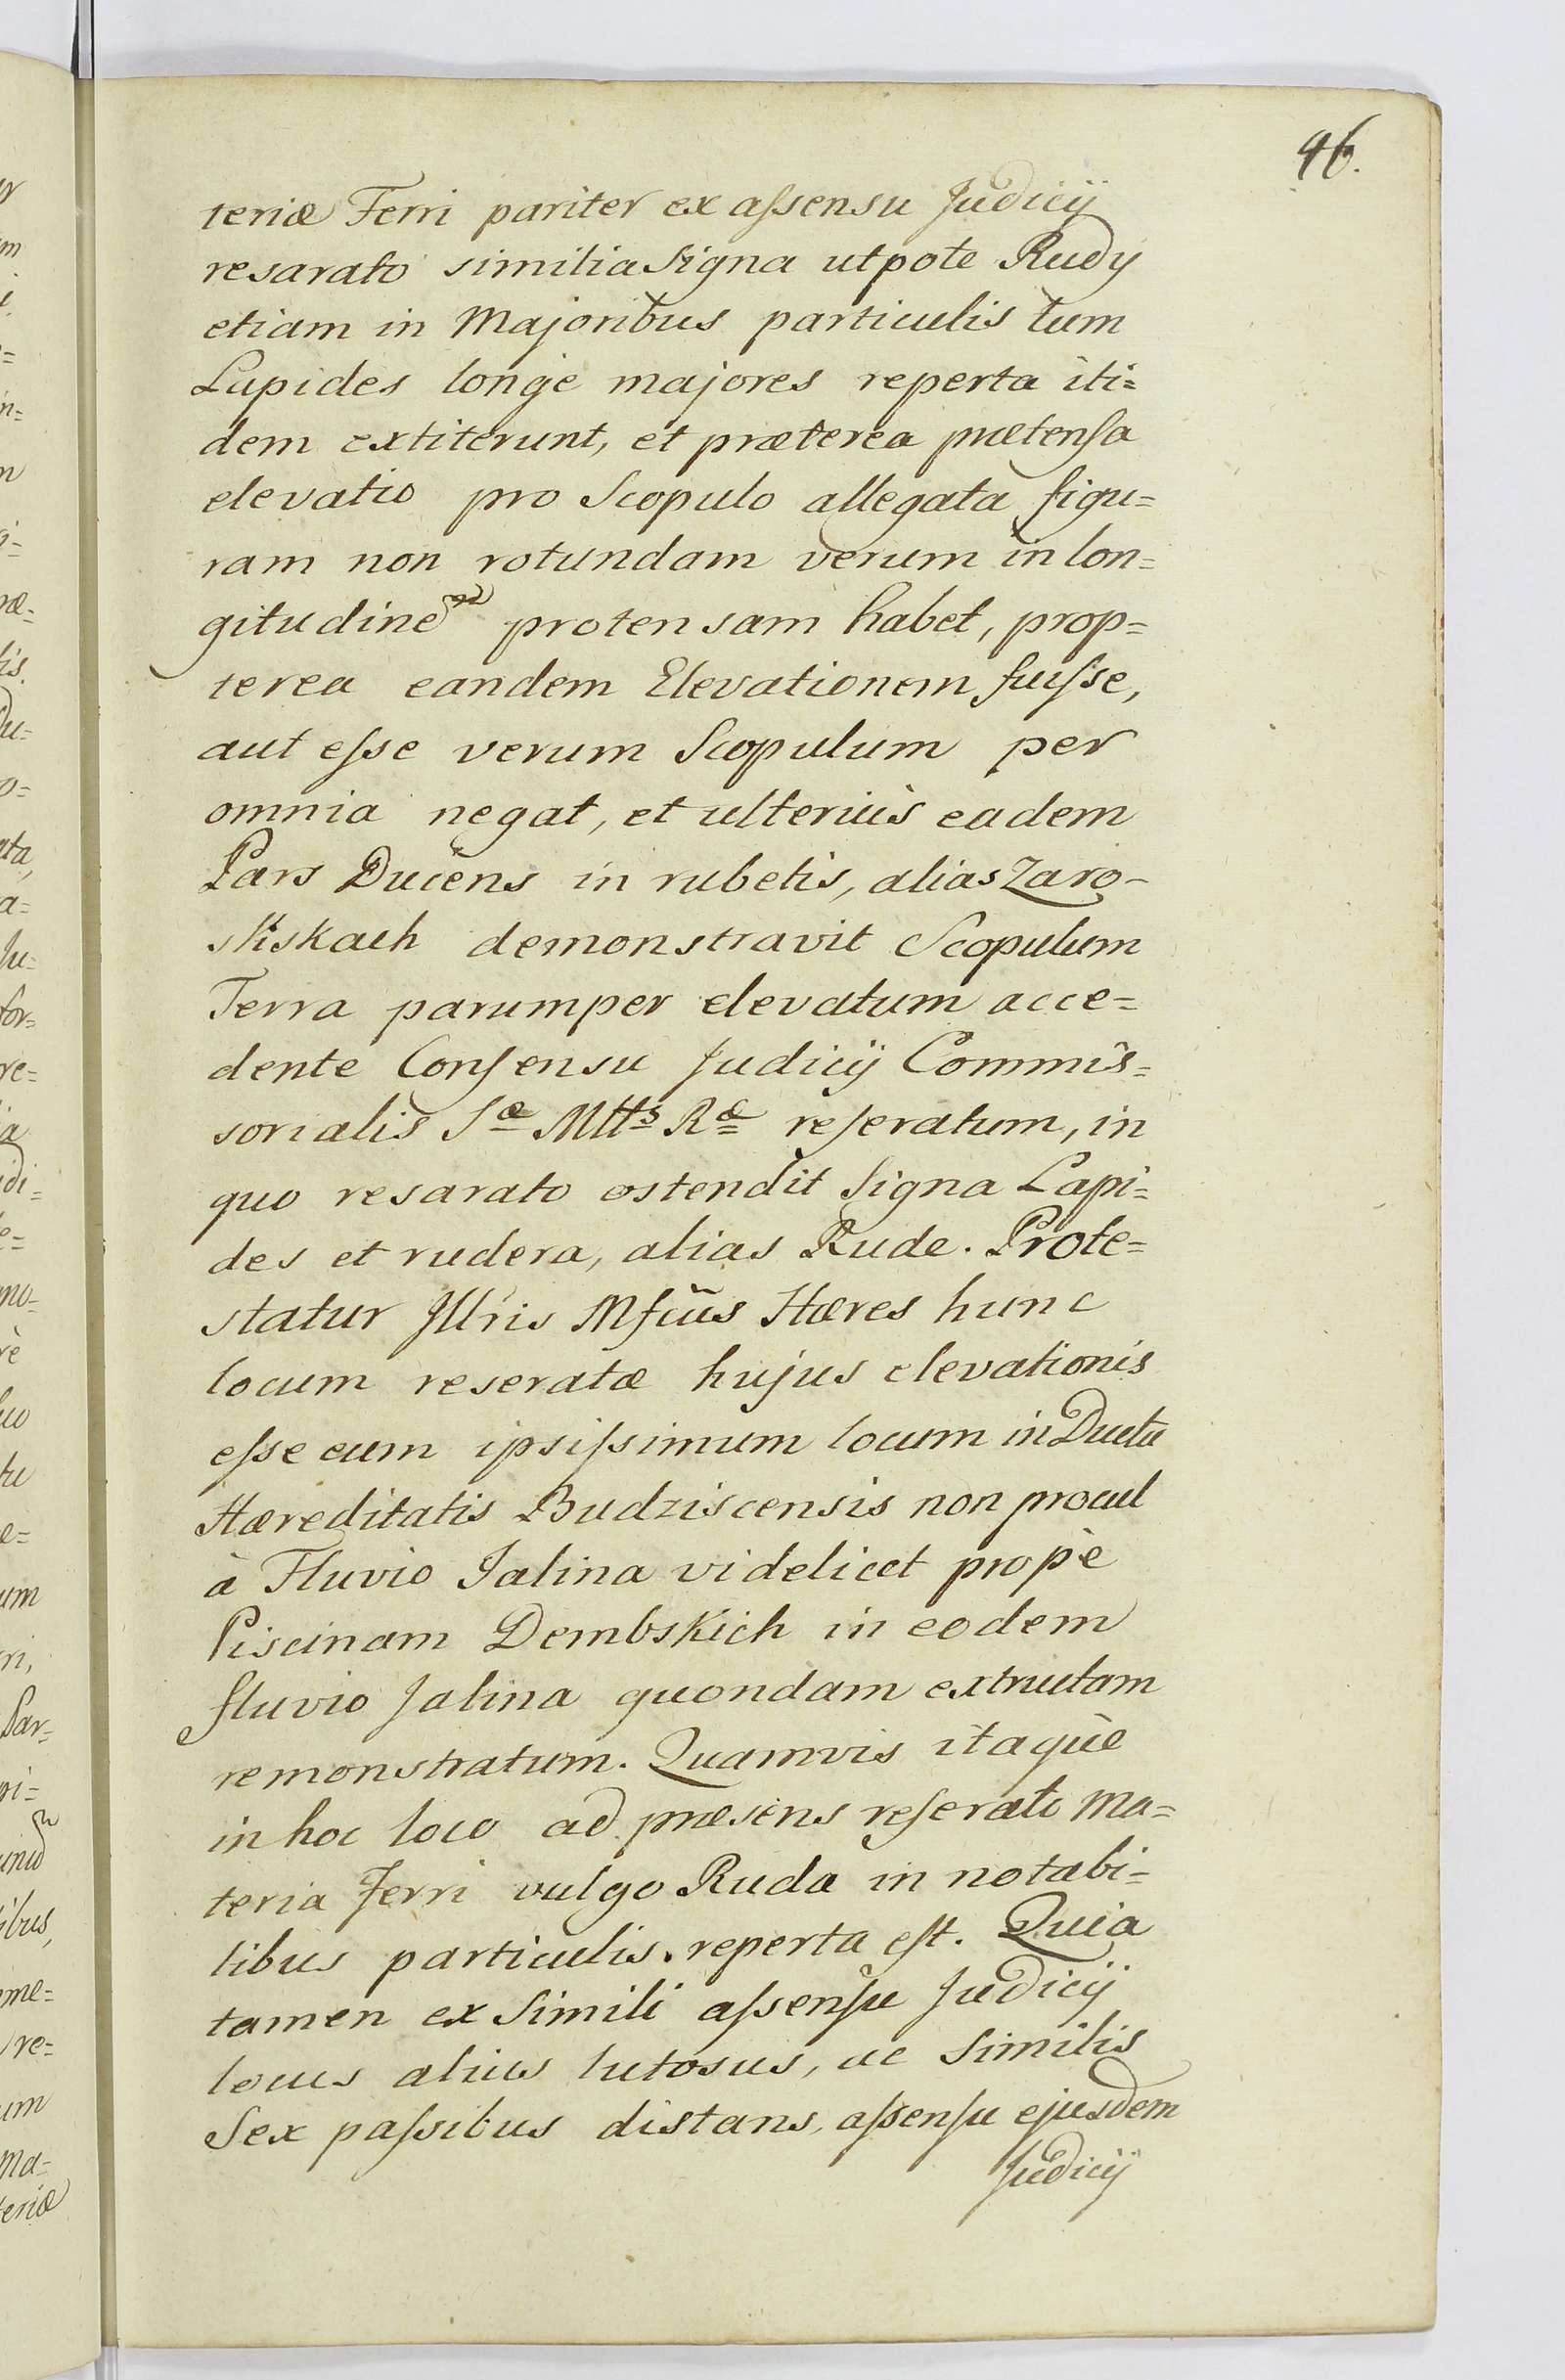 46.
teriæ Ferri pariter ex aſsensu Judicij
resarato similia Signa utpote Rudy
etiam in Majoribus particulis tum
Lapides longè majores reperta iti=
dem extiterunt, et præterea prætenſa
elevatio pro Scopulo allegata figu=
ram non rotundam verum in lon=
gitudinem protensam habet, prop=
terea eandem Elevationem fuiſse,
aut eſse verum Scopulum per
omnia negat, et ulteriùs eadem
Pars Ducens in rubetis, alias Zaro-
slískach demonstravit Scopulum
Terra parumper elevatum acce=
dente Conſensu Judicij Commis=
sorialis Sæ Mtts Ræ reſeratum, in
quo resarato ostendit Signa Lapi=
des et rudera, alias Rude. Prote=
statur Jllris Mfcus Hæres hunc
locum reseratæ hujus elevationis
eſse eum ipsiſsimum locum in Ductu
Hæreditatis Budziscensis non procul
à Fluvio Jalina videlicet propè
Piscinam Dembskich in eodem
fluvio Jalina quondam extructam
remonstratum. Quamvis itaquè
in hoc loco ad præsens reſerato Ma=
teria Ferri vulgo Ruda in notabi=
libus particulis reperta eſt. Quia
tamen ex Simili aſsenſu Judicij
locus alius lutosus, ac Similis
Sex paſsibus distans, aſsenſu ejusdem
Judicij